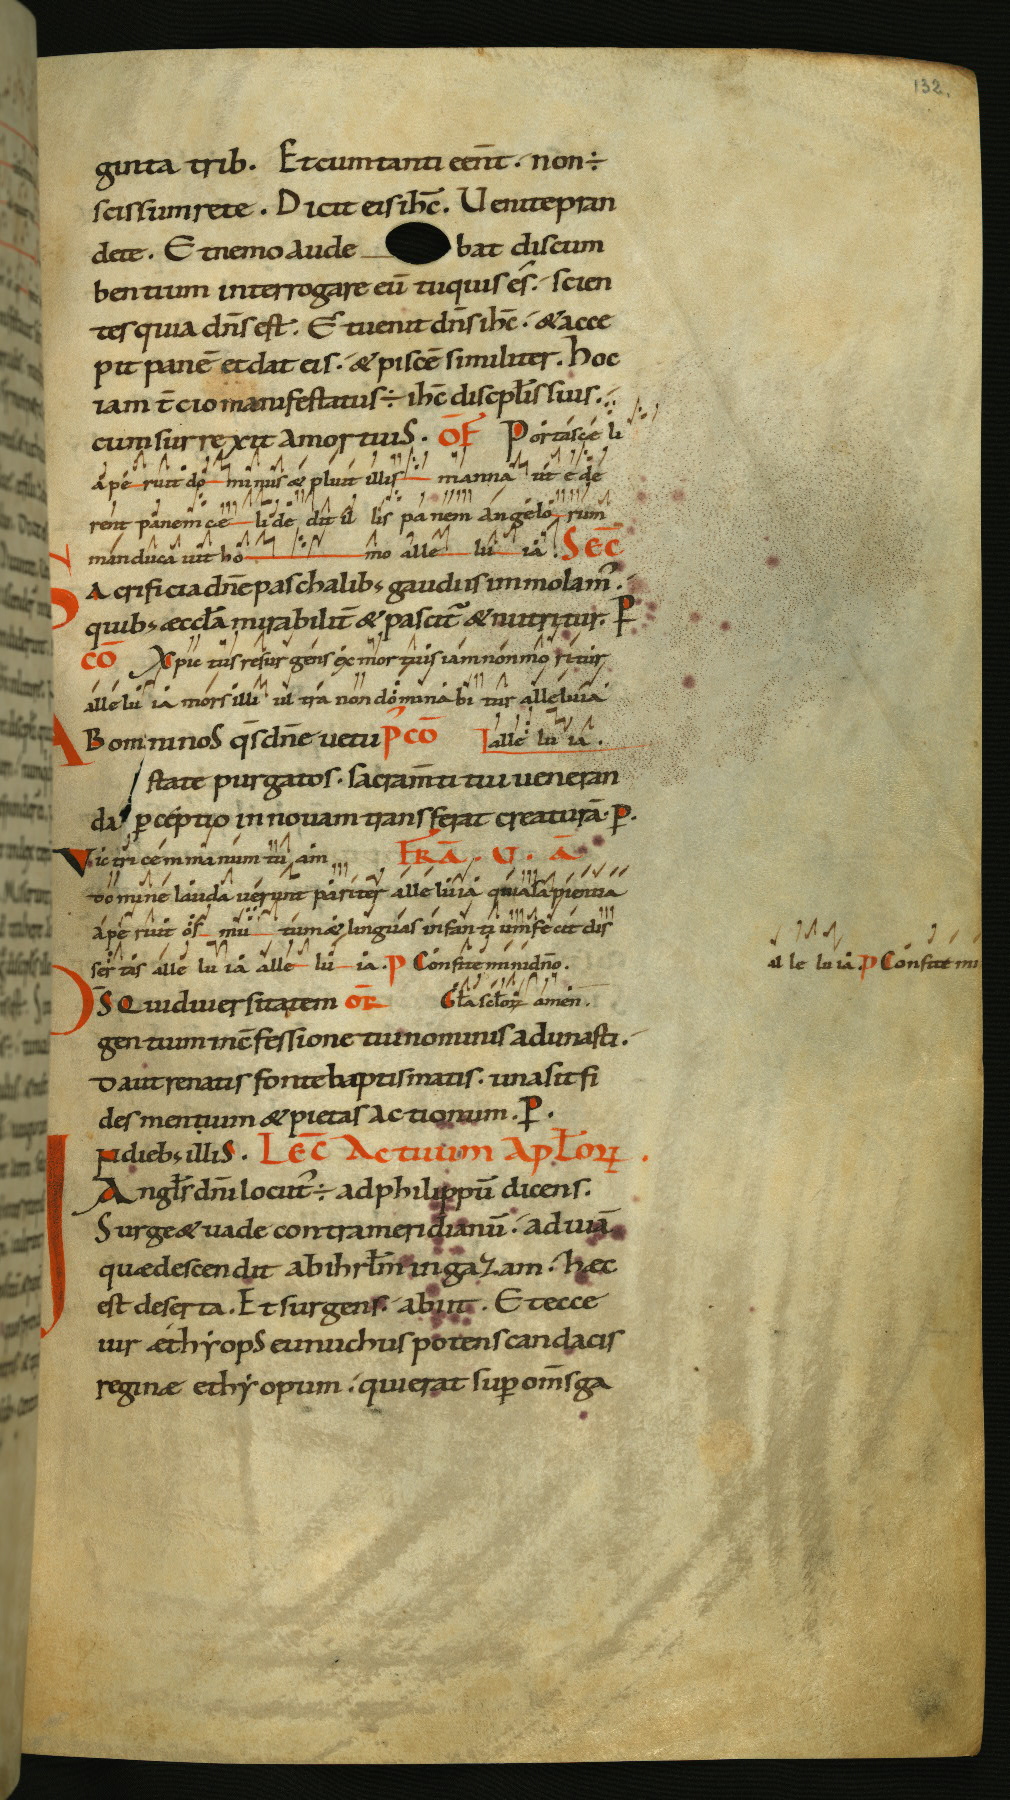 132.
ginta trib. Et cum tanti eēnt. non ÷
scissum rete. Dicit eis ihc̄. Uenite pran
dete. Et nemo aude bat discum
bentium interrogare eū tu quis es. scien
tes quia dn̄s est. Et uenit dn̄s ihc̄. & acce
pit panē et dat eis. & piscē similiter. hoc
iam t̄cio manifestatus ÷ ihc̄ discpl̄is suis.
cum surrexit a mortuis. OF̄ Portas cęli
aperuit dominus & pluit illis manna ut ede
rent panem cęli dedit illis panem angelorum
manducauit homo alleluia. SEC̄
Sacrificia dn̄e paschalib; gaudiis immolam̄.
quib; æccl̄a mirabilit̄ & pascit̄ & nutritur. P
CŌ Xp̄ictus resurgens ex mortuis iam non moritur
alleluia mors illi ultra non dominabitur alleluia
Ab omni nos qs̄ dn̄e uetu P CŌ alleluia.
state purgatos. sacram̄ti tui ueneran
da pceptio in nouam transferat creaturā. P.
Victricem manum tuam FR̄A. V. Ā
domine laudauerunt pariter alleluia quia sapientia
aperuit os mutum & linguas infantium fecit dis
sertas alleluia alleluia. P Confitemini dn̄o.
al le lu ia. P Confitemi
Ds̄ Qui diuersitatem OR̄ Gl̄a scl̄or amen.
gentium in c̄fessione tui nominis adunasti.
Da ut renatis fonte baptismatis. una sit fi
des mentium & pietas actionum. P.
In dieb; illis. LEC̄ Actuum Apl̄or.
Angl̄s dn̄i locut̄ ÷ ad philippū dicens.
Surge & uade contra meridianū. ad uiā
quæ descendit ab ihrl̄m in gazam. hæc
est deserta. Et surgens abiit. Et ecce
uir æthyops eunuchus potens candacis
reginæ ethyopum. qui erat sup om̄s ga